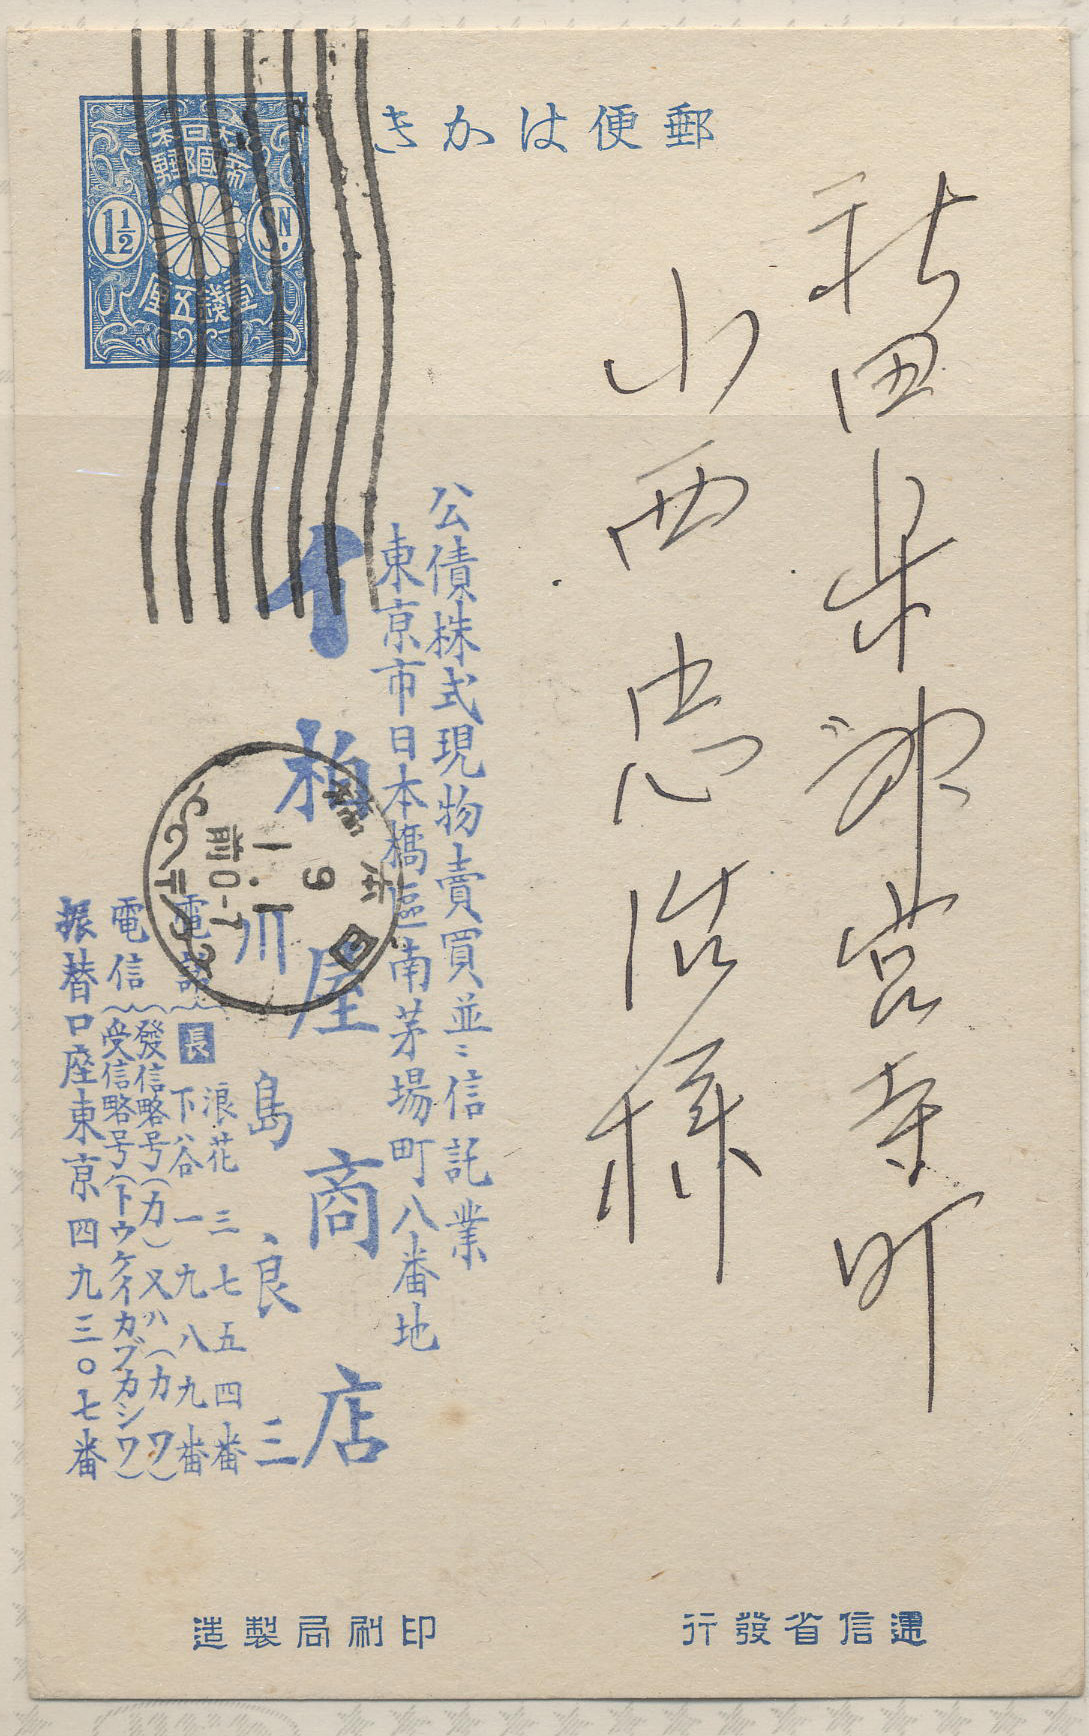 郵便はかき
大日本
帝國郵便
1½
SN.
壹錢五厘
秋田市郡宮寺町
山西忠治様
公債株式現物賣買並ニ信託業
東京市日本橋區南茅場町八番地
イ柏屋商店
川島良三
電話 長 浪花三七五四番
下谷一九八九番
電信 發信略号(カ)又ハ(カワ)
受信略号(トウケイカブカシワ)
振替口座東京四九三〇七番
日本橋
9
前0-7
遞信省發行
印刷局製造